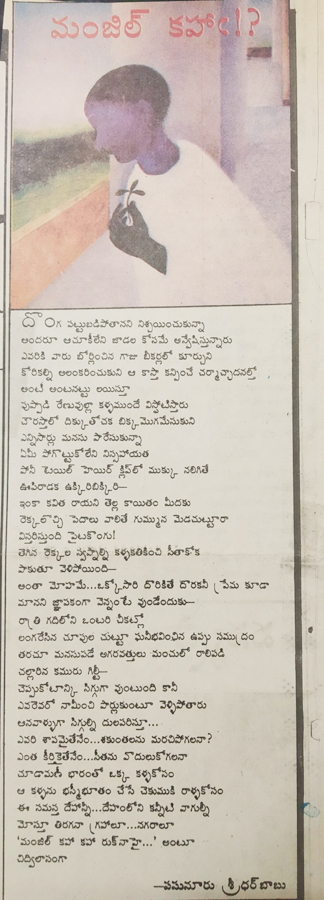 మంజిల్ కహాఁ!?
దొంగ పట్టుబడిపోతానని నిశ్చయించుకున్నా
అందరూ ఆచూకీలేని జాడల కోసమే అన్వేషిస్తున్నారు
ఎవరికి వారు బోర్లించిన గాజు బీకర్లలో కూర్చుని
కోరికల్ని అలంకరించుకుని ఆ కాస్తా కన్పించే చర్మాచ్ఛాదనల్తో
అంటీ అంటనట్టు లయిస్తూ
పుప్పొడి రేణువుల్లా కళ్ళముందే విస్ఫోటిస్తారు
చౌరస్తాలో దిక్కుతోచక బిక్కమొగమేసుకుని
ఎన్నిసార్లు మనసు పారేసుకున్నా
ఏమీ పోగొట్టుకోలేని నిస్సహాయత
పోనీ టెయిల్ హెయిర్ క్లిప్‌లో ముక్కు నలిగితే
ఊపిరాడక ఉక్కిరిబిక్కిరి—
ఇంకా కవిత రాయని తెల్ల కాయితం మీదకు
రెక్కలొచ్చి పెదాలు వాలితే గుమ్మున మెడచుట్టూరా
విస్తరిస్తుంది పైటకొంగు!
తెగిన రెక్కల స్వప్నాల్ని కళ్ళకతికించి సీతాకోక
పాకుతూ వెళిపోయింది—
అంతా మోహమే...ఒక్కోసారి దొరికితే దొరకనీ ప్రేమ కూడా
మానని జ్ఞాపకంగా వెన్నంటే వుండేందుకు—
రాత్రి గదిలోని ఒంటరి చీకట్లో
లంగరేసిన చూపుల చుట్టూ ఘనీభవించిన ఉప్పు సముద్రం
తరచూ మనసుపడే అగరవత్తులు మంచులో రాలిపడి
చల్లారిన కమురు గిల్టీ—
చెప్పుకోటాన్కి సిగ్గుగా వుంటుంది కానీ
ఎవరెవరో నామీంచి పార్లుకుంటూ వెళ్లిపోతారు
ఆనవాళ్ళుగా సిగ్గుల్ని దులపరిస్తూ...
ఎవరి శాపమైతేనేం...శకుంతలను మరచిపోగలనా?
ఎంత కీర్తికైతేనేం...సీతను వొదులుకోగలనా
చూడామణీ భారంతో ఒక్క కళ్ళకోసం
ఆ కళ్ళను భస్మీభూతం చేసే చెకుముకి రాళ్ళకోసం
ఈ సమస్త దేహాన్నీ...దేహంలోని కన్నీటి వాగుల్నీ
మోస్తూ తిరగనా గ్రహాలూ...నగరాలూ
'మంజిల్ కహా కహా రుక్‌నాహై...' అంటూ
చిద్విలాసంగా
—పమునూరు శ్రీధర్‌బాబు